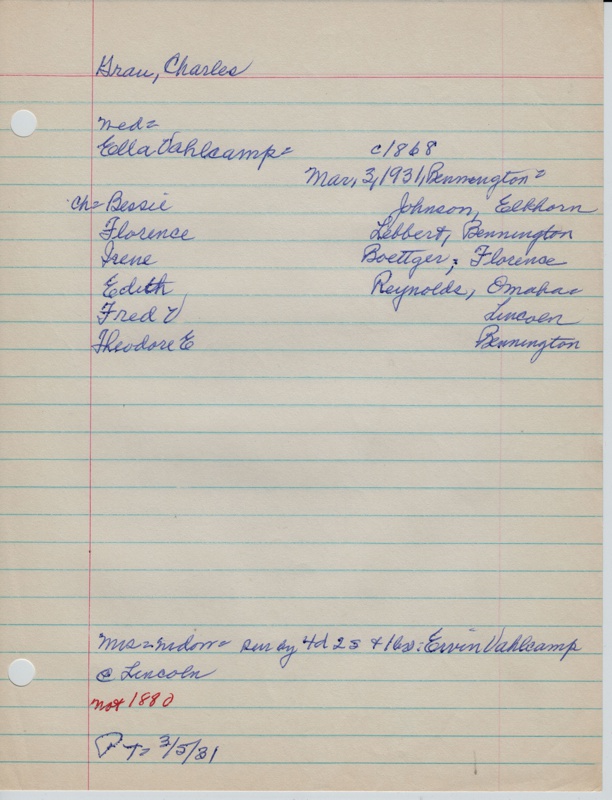 Grau, Charles
med=
Ella Vahlcamp= c1868
Mar, 3, 1931, Bennington=
ch= Bessie Johnson, Elkhorn
Florence Lebbert, Bennington
Irene Boettger, Florence
Edith Reynolds, Omaha=
Fred V Lincoln
Theodore E Bennington
Mrs = widow = sur by 4d 2s + 1bro: Ervin Vahlcamp
@ Lincoln
not 1880
PT= 3/5/31